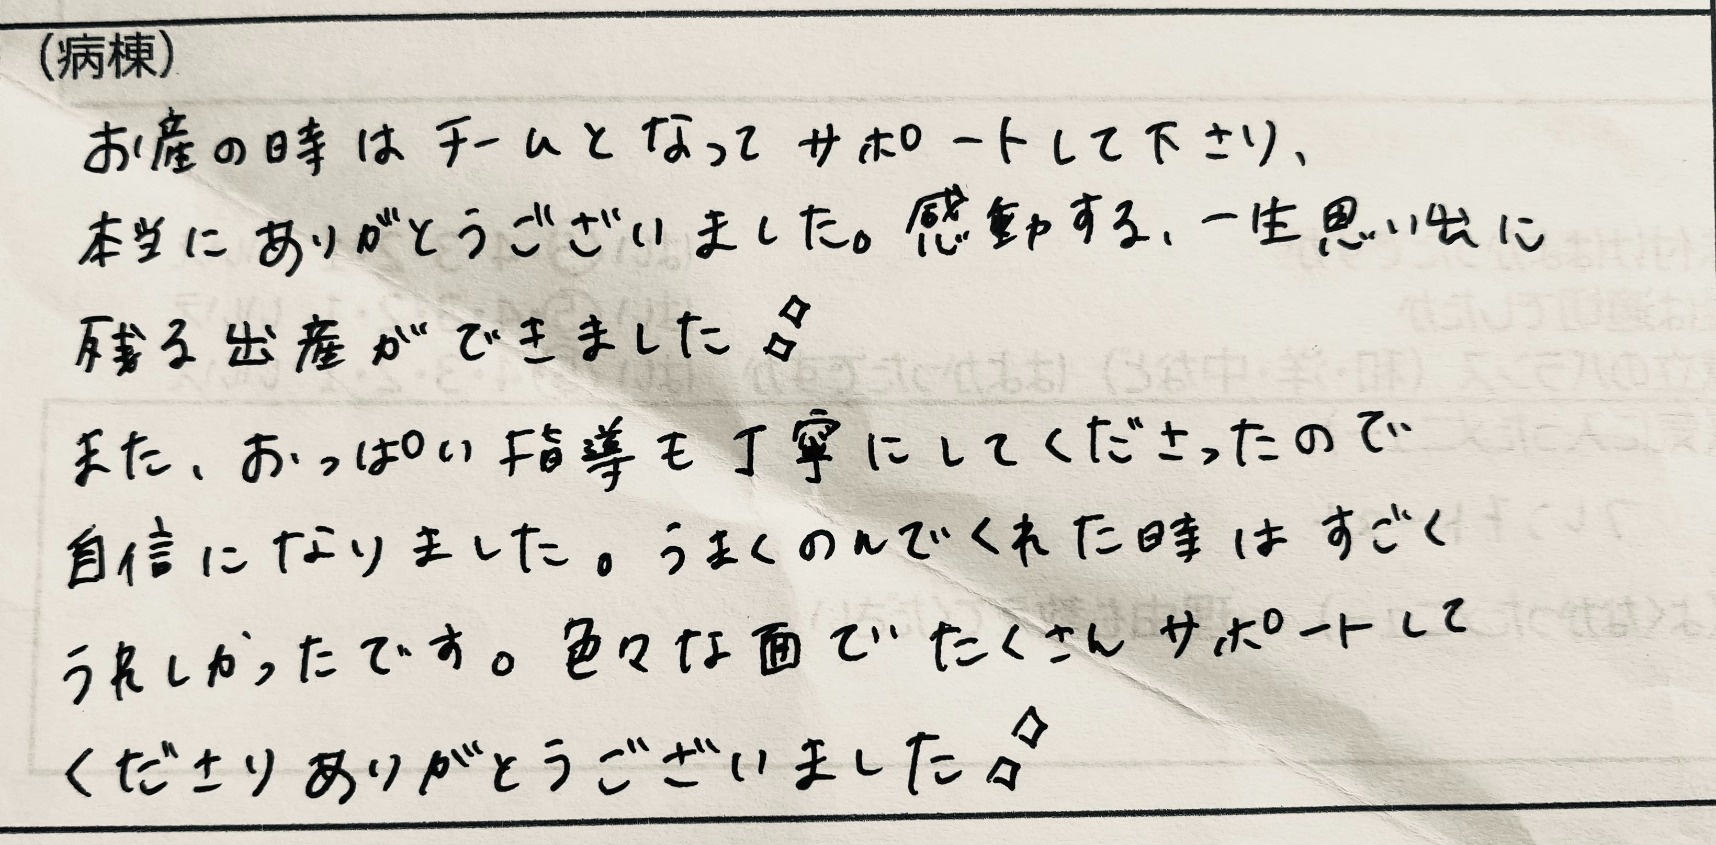 (病棟)
お産の時はチームとなってサポートして下さり、
本当にありがとうございました。感動する、一生思い出に
残る出産ができました
また、おっぱい指導も丁寧にしてくださったので
自信になりました。うまくのんでくれた時はすごく
うれしかったです。色々な面でたくさんサポートして
くださりありがとうございました